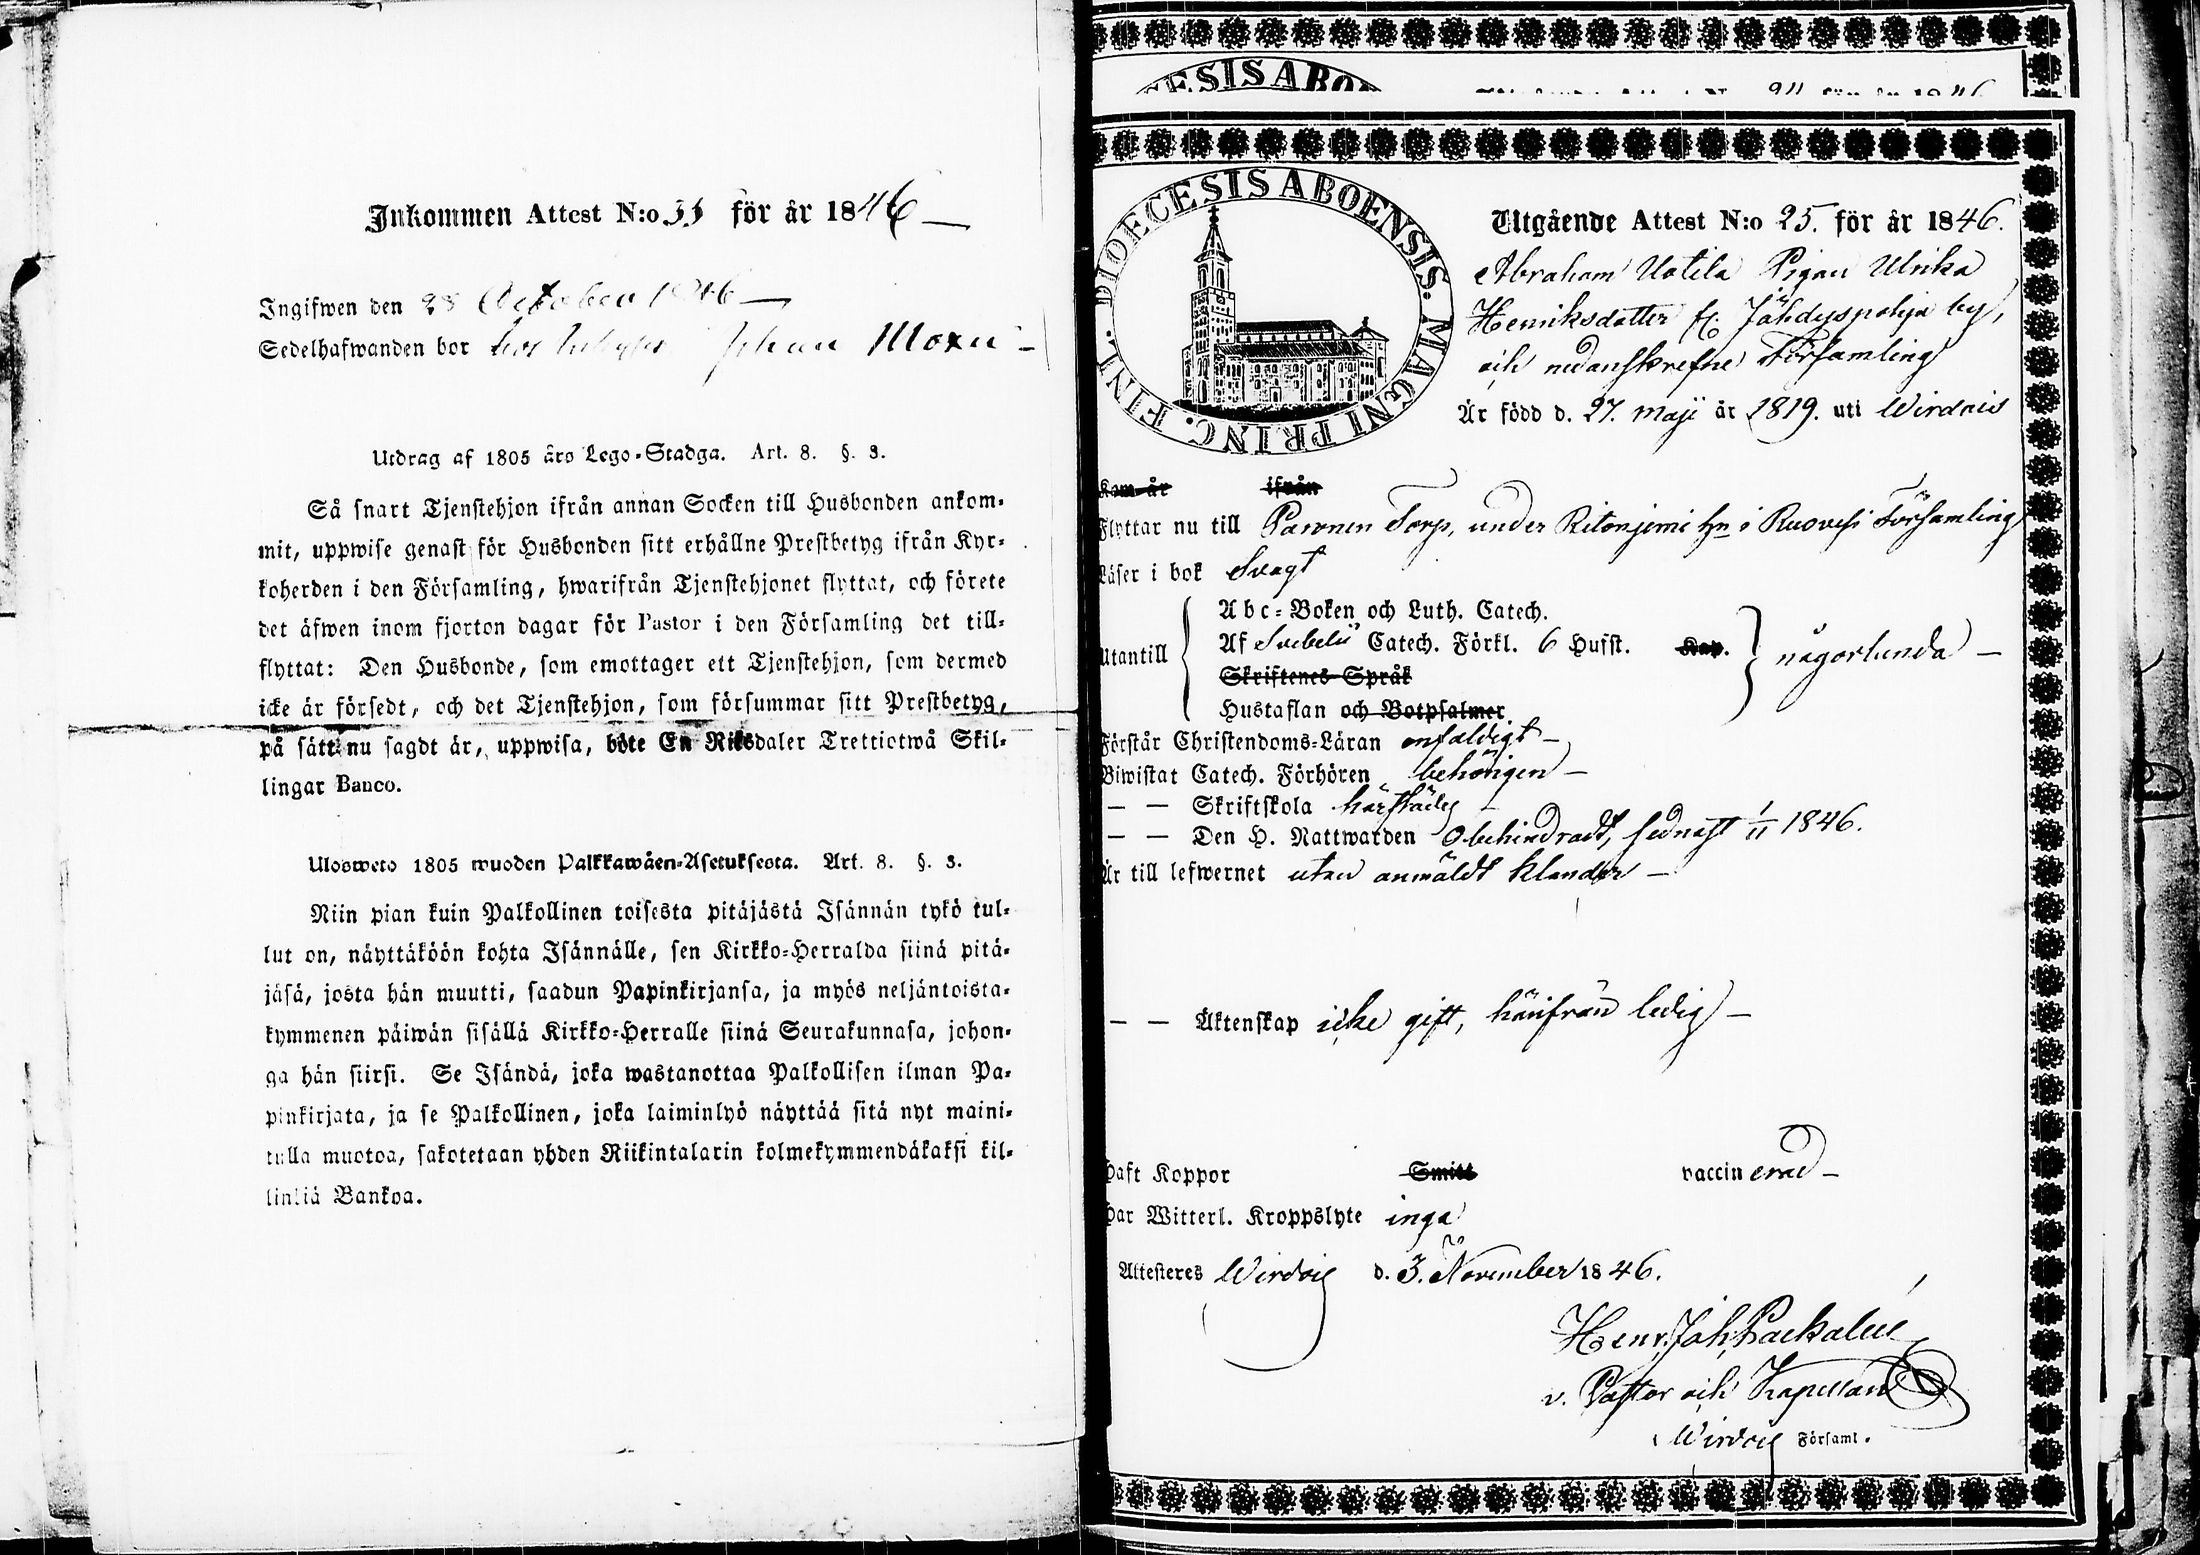 Inkommen Attest N:o 33 för år 1846
Ingifwen den 28 October 1846
Sedelhafwanden bor hos Johan
Utdrag af 1805 års Lego-Stadga. Art. 8. §. 3.
Så snart Tjenstehjon ifrån annan Socken till Husbonden ankom-
mit, uppwise genast för Husbonden sitt erhållne Prestbetyg ifrån Kyr-
koherden i den Församling, hwarifrån Tjenstehjonet flyttat, och förete
det äfwen inom fjorton dagar för Pastor i den Församling det till-
flyttat: Den Husbonde, som emottager ett Tjenstehjon, som dermed
icke är försedt, och det Tjenstehjon, som försummar sitt Prestbetyg,
på sätt nu sagdt är, uppwisa, böte En Riksdaler Trettiotwå Skil-
lingar Banco.
Ulosweto 1805 wuoden Palkkawäen-Asetuksesta. Art. 8. §. 3.
Niin pian kuin Palkollinen toisesta pitäjästä Isännän tykö tul-
lut on, näyttäköön kohta Isännälle, sen Kirkko-Herralda siinä pitä-
jäsä, josta hän muutti, saadun Papinkirjansa, ja myös neljäntoista-
kymmenen päiwän sisällä Kirkko-Herralle siinä Seurakunnasa, johon-
ga hän siirsi. Se Isändä, joka wastanottaa Palkollisen ilman Pa-
pinkirjata, ja se Palkollinen, joka laiminlyö näyttää sitä nyt maini-
tulla muotoa, sakotetaan yhden Riikintalarin kolmekymmendäkaksi kil-
linkiä Bankoa.
DIOECESIS ABOENSIS. MAGNI PRINC. FINL.
Utgående Attest N:o 25. för år 1846.
Abraham Uotila Pigan Ulrika
Henriksdotter fr. Jähdyspohja by,
och nedanskrefne Församling
Är född d. 27. Maji år 1819. uti Wirdois
Kom år ifrån
Flyttar nu till Paronen Torp, under Ritoniemi hn i Ruovesi Församling
Läser i bok Svagt
Abc-Boken och Luth. Catech.
Utantill Af Svebelii Catech. Förkl. 6 Hufst. Kap. någorlunda
Skriftenes Språk
Hustaflan och Botpsalmer
Förstår Christendoms-Läran enfaldigt
Biwistat Catech. Förhören behörigen
— — Skriftskola härstädes
— — Den H. Nattwarden Obehindradt, sednast 1/11 1846.
Är till lefwernet utan anmäldt klander
— — Äktenskap icke gift, härifrån ledig
Haft Koppor Smitt vaccinerad
Har Witterl. Kroppslyte inga
Attesteres Wirdois d. 3. November 1846.
Henr. Joh. Packalen
v. Pastor och Kapellan
i Wirdois Församl.